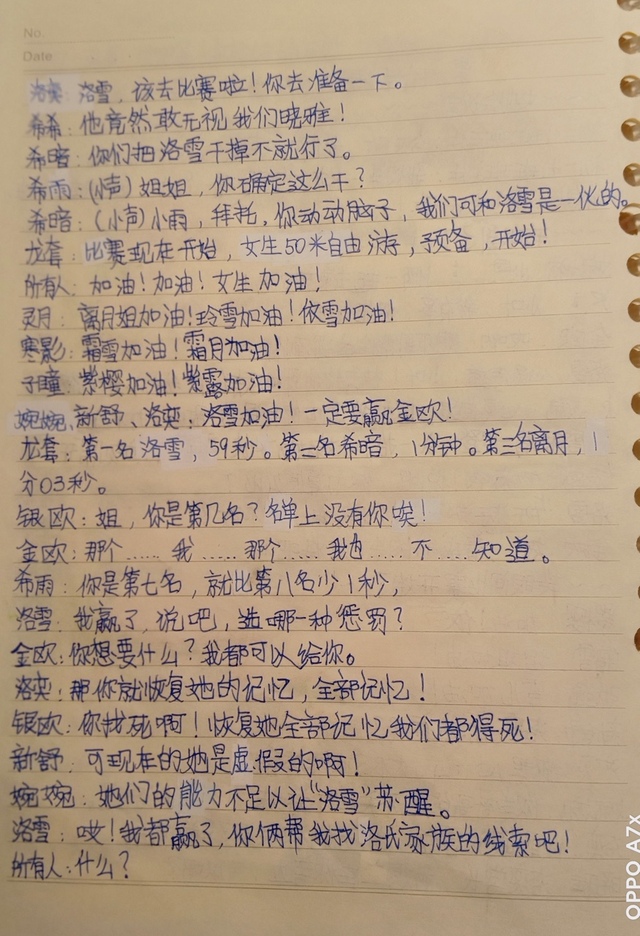 No.
Date
洛奕：洛雪，该去比赛啦！你去准备一下。
希希：他竟然敢无视我们晓雅！
希暗：你们把洛雪干掉不就行了。
希雨：(小声)姐姐，你确定这么干？
希暗：(小声)小雨，拜托，你动动脑子，我们可和洛雪是一伙的。
龙套：比赛现在开始，女生50米自由游，预备，开始！
所有人：加油！加油！女生加油！
灵月：离月姐加油！玲雪加油！依雪加油！
寒影：霜雪加油！霜月加油！
子瞳：紫樱加油！紫露加油！
婉婉、新舒、洛奕：洛雪加油！一定要赢金欧！
龙套：第一名洛雪，59秒。第二名希暗，1分钟。第三名离月，1
分03秒。
银欧：姐，你是第几名？名单上没有你唉！
金欧：那个……我……那个……我也……不……知道。
希雨：你是第七名，就比第八名少1秒，
洛雪：我赢了，说吧，选哪一种惩罚？
金欧：你想要什么？我都可以给你。
洛奕：那你就恢复她的记忆，全部记忆！
银欧：你找死啊！恢复她全部记忆我们都得死！
新舒：可现在的她是虚假的啊！
婉婉：她们的能力不足以让“洛雪”苏醒。
洛雪：哎！我都赢了，你俩帮我找洛氏家族的线索吧！
所有人：什么？
OPPO A7x